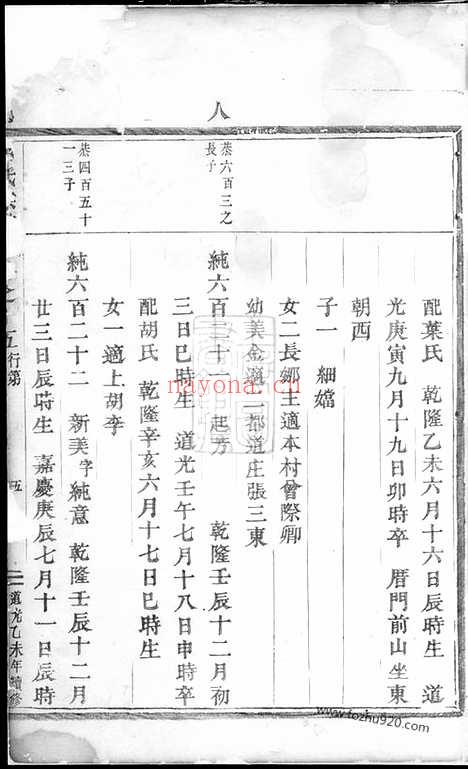 八
恭六百三之
長子
恭四百五十
一三子
配葉氏 乾隆乙未六月十六日辰時生 道
光庚寅九月十九日卯時卒 厝門前山坐東
朝西
子一 細嬀
女二長娜主適本村曾際卿
幼美金適二都道庄張三東
純六百二十一 起芳 乾隆壬辰十二月初
三日巳時生 道光壬午七月十八日申時卒
配胡氏 乾隆辛亥六月十七日巳時生
女一適上胡李
純六百二十二 新美字純意 乾隆壬辰十二月
廿三日辰時生 嘉慶庚辰七月十一日辰時
行第 五
道光乙未年續修
nayona.cn
www.tozhu920.com